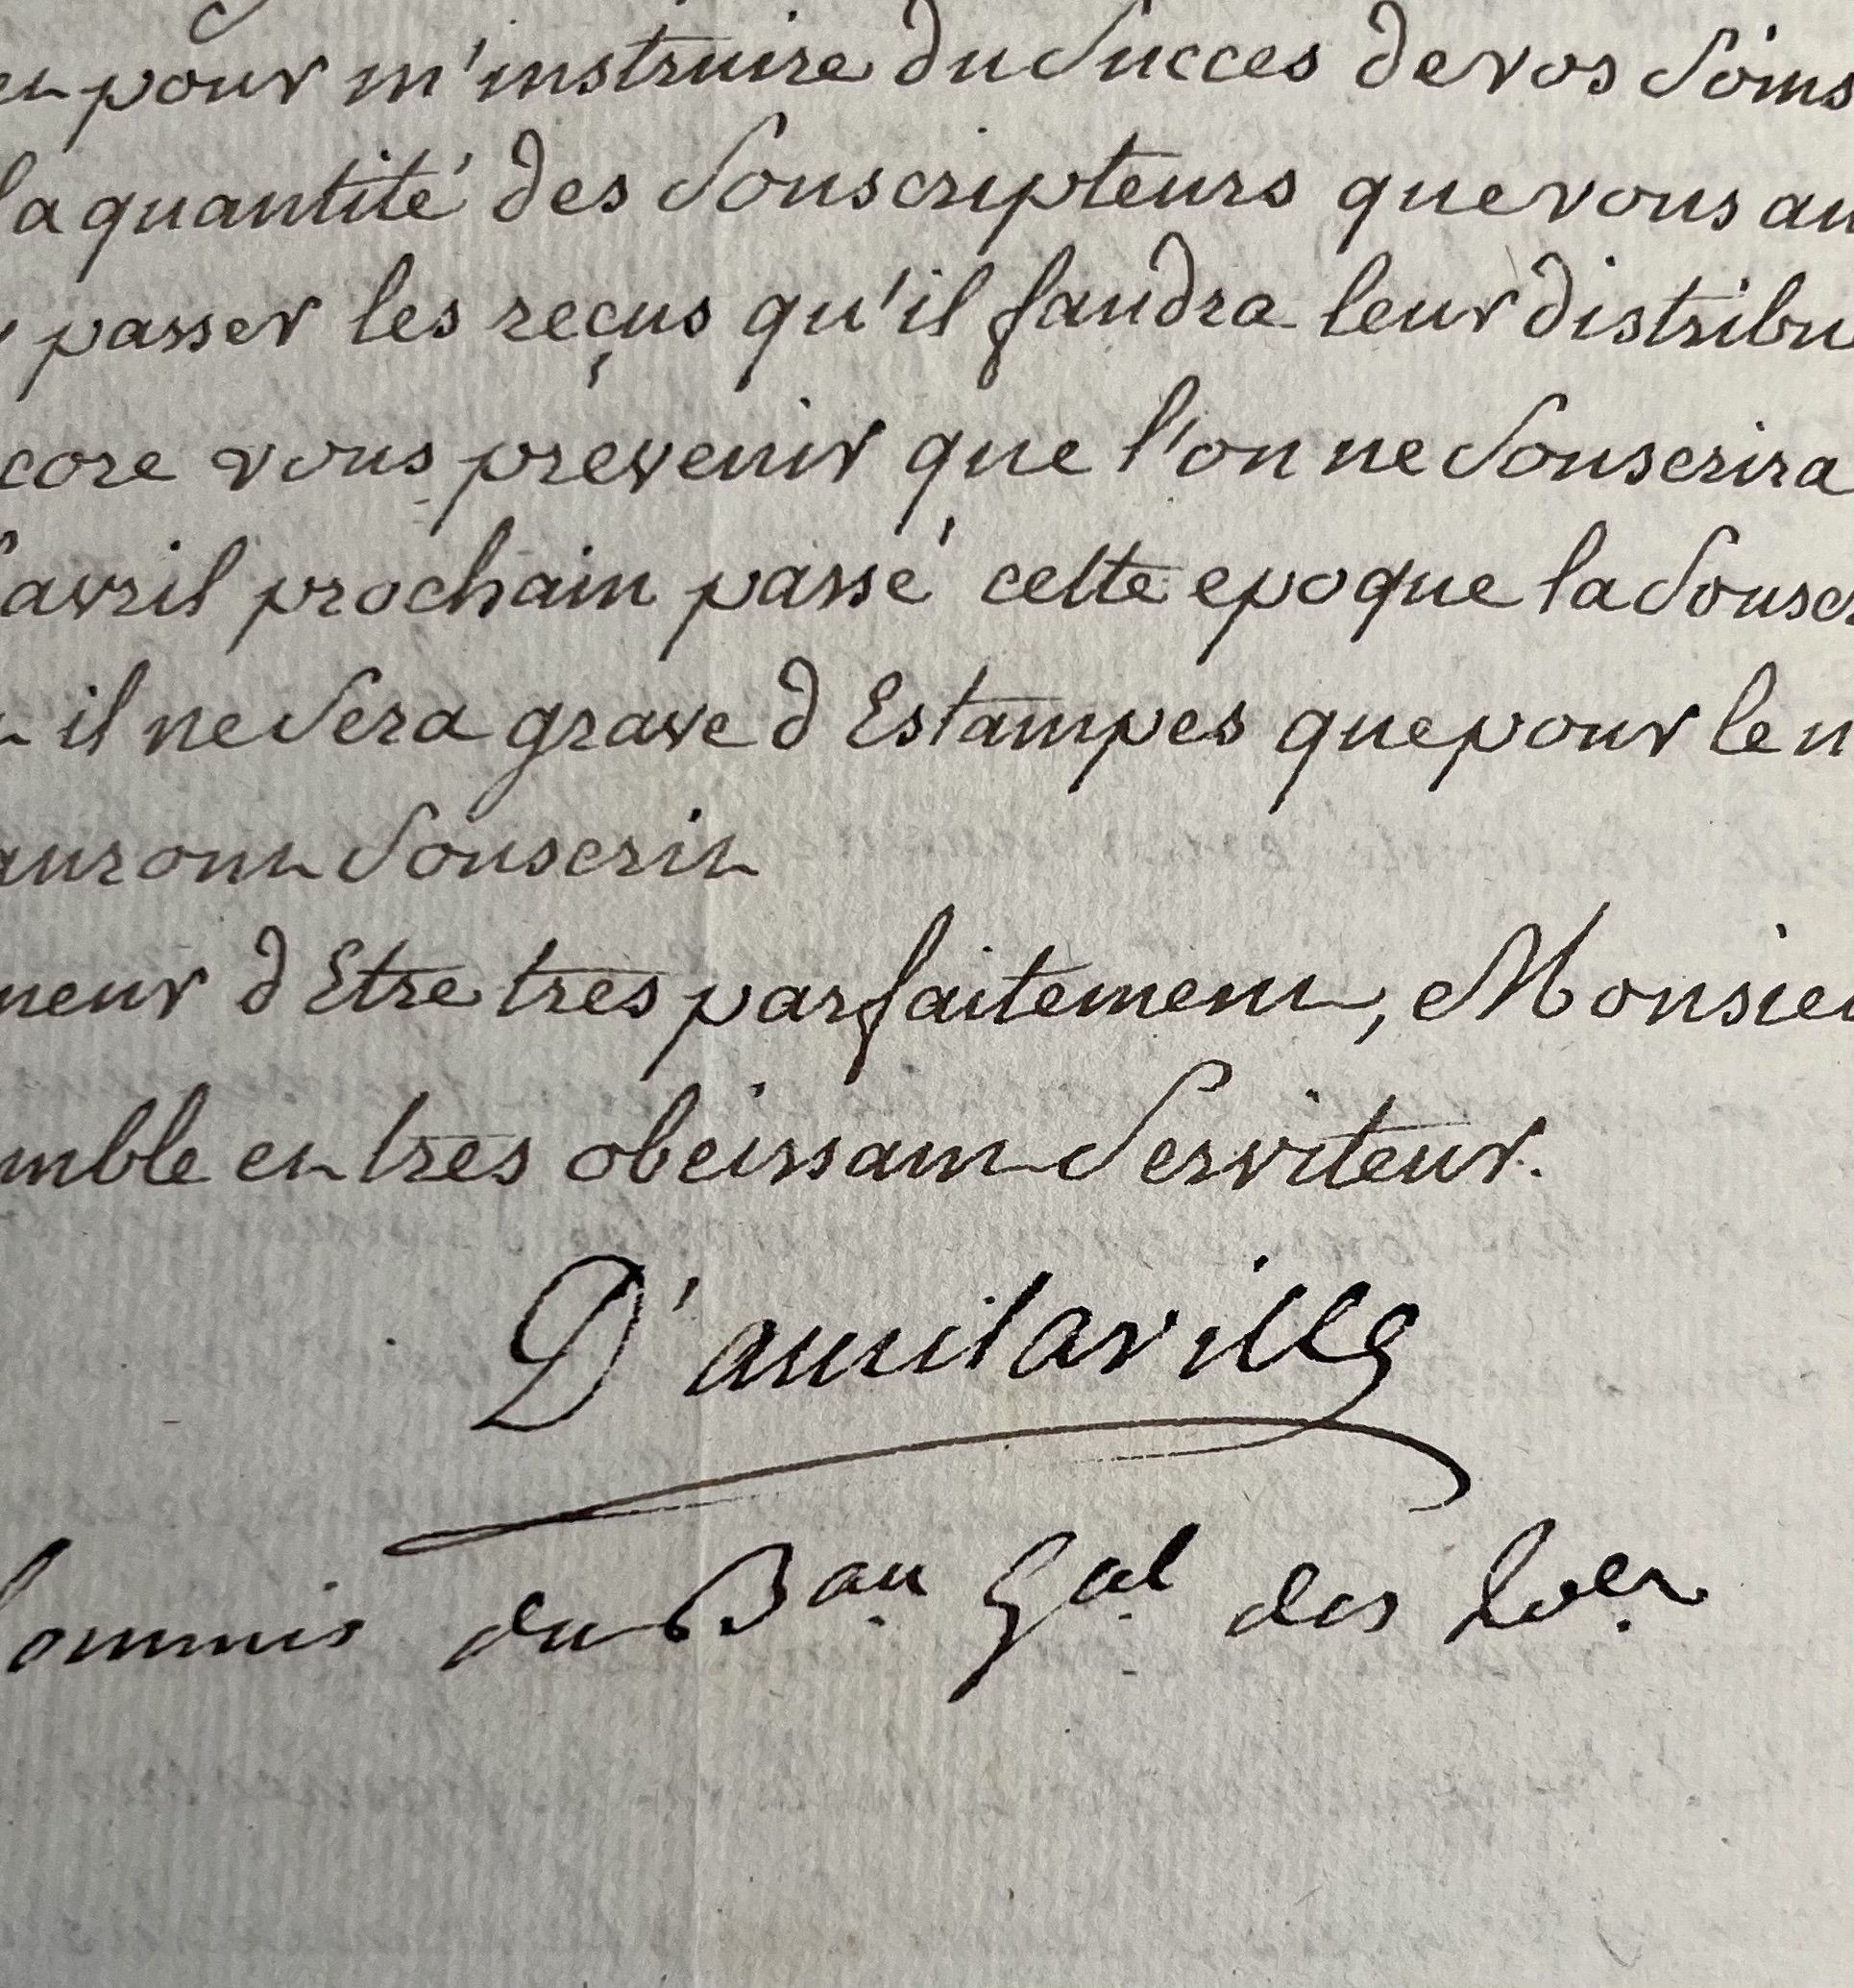 et pour m'instruire du Succes de vos Soins
la quantité des Souscripteurs que vous au
passer les reçus qu'il faudra leur distribu
core vous prevenir que l'on ne Souscrira
avril prochain passé cette epoque la Souscr
il ne Sera grave d Estampes que pour le n
auront Souscrit
neur d Etre tres parfaitement, Monsieu
mble et tres obeissant Serviteur.
D'amilaville
Commis du Bau Gal des